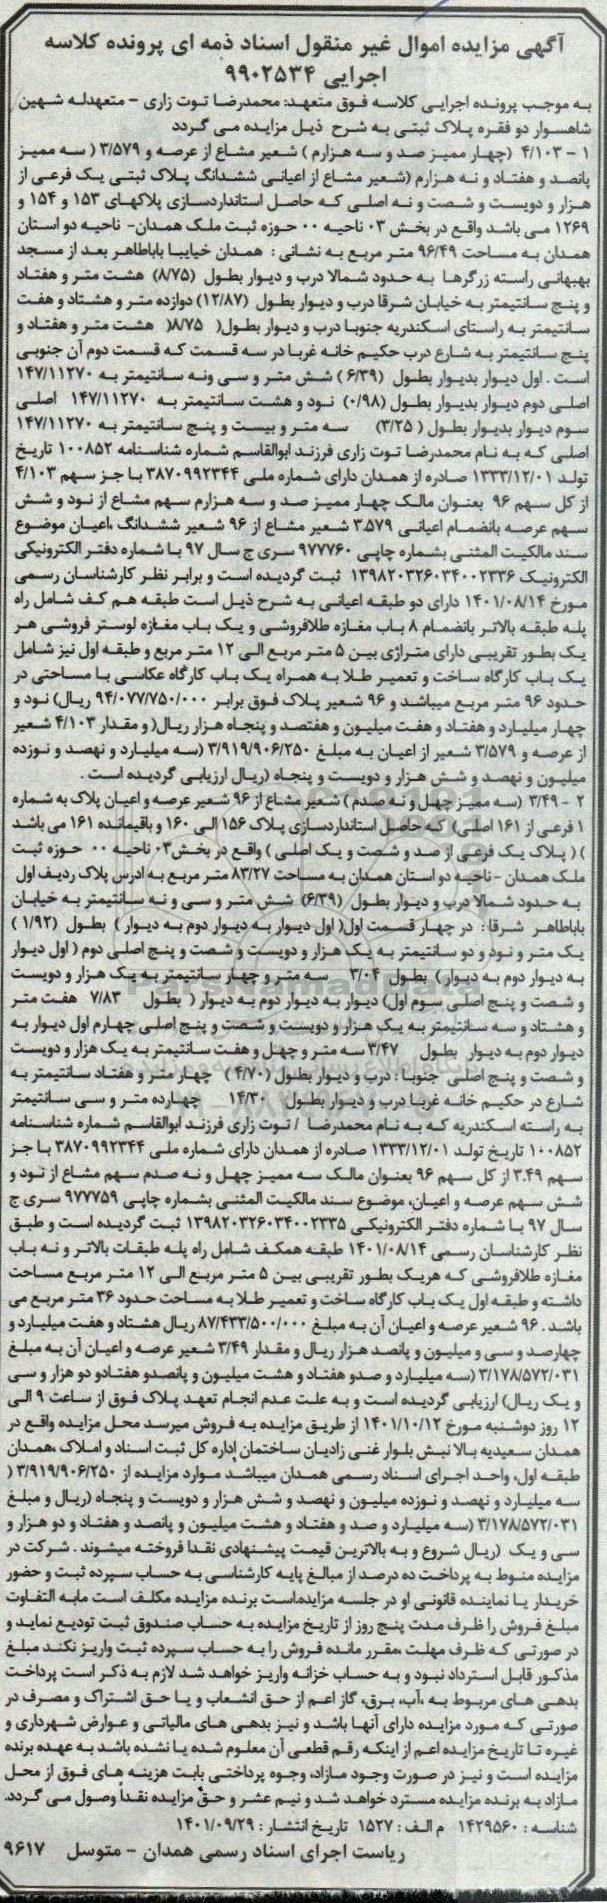 آگهی مزایده اموال غیر منقول اسناد ذمه ای پرونده کلاسه
اجرایی ۹۹۰۲۵۳۴
به موجب پرونده اجرایی کلاسه فوق متعهد: محمدرضا توت زاری - متعهدله شهین
شاهسوار دو فقره پلاک ثبتی به شرح ذیل مزایده می گردد
۱ - ۴/۱۰۳ (چهار ممیز صد و سه هزارم) شعیر مشاع از عرصه و ۳/۵۷۹ ( سه ممیز
پانصد و هفتاد و نه هزارم (شعیر مشاع از اعیانی ششدانگ پلاک ثبتی یک فرعی از
هزار و دویست و شصت و نه اصلی که حاصل استانداردسازی پلاکهای ۱۵۳ و ۱۵۴ و
۱۲۶۹ می باشد واقع در بخش ۰۳ ناحیه ۰۰ حوزه ثبت ملک همدان- ناحیه دو استان
همدان به مساحت ۹۶/۴۹ متر مربع به نشانی : همدان خیابیا باباطاهر بعد از مسجد
بهبهانی راسته زرگرها به حدود شمالا درب و دیوار بطول (۸/۷۵) هشت متر و هفتاد
و پنج سانتیمتر به خیابان شرقا درب و دیوار بطول (۱۲/۸۷) دوازده متر و هشتاد و هفت
سانتیمتر به راستای اسکندریه جنوبا درب و دیوار بطول( ۸/۷۵( هشت متر و هفتاد و
پنج سانتیمتر به شارع درب حکیم خانه غربا در سه قسمت که قسمت دوم آن جنوبی
است . اول دیوار بدیوار بطول (۶/۳۹) شش متر و سی ونه سانتیمتر به ۱۴۷/۱۱۲۷۰
اصلی دوم دیوار بدیوار بطول (۰/۹۸) نود و هشت سانتیمتر به ۱۴۷/۱۱۲۷۰ اصلی
سوم دیوار بدیوار بطول ( ۳/۲۵) سه متر و بیست و پنج سانتیمتر به ۱۴۷/۱۱۲۷۰
اصلی که به نام محمدرضا توت زاری فرزند ابوالقاسم شماره شناسنامه ۱۰۰۸۵۲ تاریخ
تولد ۱۳۳۳/۱۲/۰۱ صادره از همدان دارای شماره ملی ۳۸۷۰۹۹۲۳۴۴ با جز سهم ۴/۱۰۳
از کل سهم ۹۶ بعنوان مالک چهار ممیز صد و سه هزارم سهم مشاع از نود و شش
سهم عرصه بانضمام اعیانی ۳.۵۷۹ شعیر مشاع از ۹۶ شعیر ششدانگ ،اعیان موضوع
سند مالکیت المثنی بشماره چاپی ۹۷۷۷۶۰ سری ج سال ۹۷ با شماره دفتر الکترونیکی
الکترونیک ۱۳۹۸۲۰۳۲۶۰۳۴۰۰۲۳۳۶ ثبت گردیده است و برابر نظر کارشناسان رسمی
مورخ ۱۴۰۱/۰۸/۱۴ دارای دو طبقه اعیانی به شرح ذیل است طبقه هم کف شامل راه
پله طبقه بالاتر بانضمام ۸ باب مغازه طلافروشی و یک باب مغازه لوستر فروشی هر
یک بطور تقریبی دارای متراژی بین ۵ متر مربع الی ۱۲ متر مربع و طبقه اول نیز شامل
یک باب کارگاه ساخت و تعمیر طلا به همراه یک باب کارگاه عکاسی با مساحتی در
حدود ۹۶ متر مربع میباشد و ۹۶ شعیر پلاک فوق برابر ۹۴/۰۷۷/۷۵۰/۰۰۰ ریال) نود و
چهار میلیارد و هفتاد و هفت میلیون و هفتصد و پنجاه هزار ریال( و مقدار ۴/۱۰۳ شعیر
از عرصه و ۳/۵۷۹ شعیر از اعیان به مبلغ ۳/۹۱۹/۹۰۶/۲۵۰ (سه میلیارد و نهصد و نوزده
میلیون و نهصد و شش هزار و دویست و پنجاه (ریال ارزیابی گردیده است .
۲ - ۳/۴۹ (سه ممیز چهل و نه صدم ) شعیر مشاع از ۹۶ شعیر عرصه و اعیان پلاک به شماره
۱ فرعی از ۱۶۱ اصلی) که حاصل استانداردسازی پلاک ۱۵۶ الی ۱۶۰ و باقیمانده ۱۶۱ می باشد
) ( پلاک یک فرعی از صد و شصت و یک اصلی ) واقع در بخش۰۳ ناحیه ۰۰ حوزه ثبت
ملک همدان -ناحیه دو استان همدان به مساحت ۸۳/۲۷ متر مربع به آدرس پلاک ردیف اول
به حدود شمالا درب و دیوار بطول (۶/۳۹) شش متر و سی و نه سانتیمتر به خیابان
باباطاهر شرقا : در چهار قسمت اول( اول دیوار به دیوار دوم به دیوار ) بطول (۱/۹۲ )
یک متر و نود و دو سانتیمتر به یک هزار و دویست و شصت و پنج اصلی دوم ( اول دیوار
به دیوار دوم به دیوار) بطول ۳/۰۴ سه متر و چهار سانتیمتر به یک هزار و دویست
و شصت و پنج اصلی سوم اول) دیوار به دیوار دوم به دیوار ( بطول ۷/۸۳ هفت متر
و هشتاد و سه سانتیمتر به یک هزار و دویست و شصت و پنج اصلی چهارم اول دیوار به
دیوار دوم به دیوار بطول ۳/۴۷ سه متر و چهل و هفت سانتیمتر به یک هزار و دویست
و شصت و پنج اصلی جنوبا : درب و دیوار بطول (۴/۷۰ ) چهار متر و هفتاد سانتیمتر به
شارع در حکیم خانه غربا درب و دیوار بطول ۱۴/۳۰ چهارده متر و سی سانتیمتر
به راسته اسکندریه که به نام محمدرضا / توت زاری فرزند ابوالقاسم شماره شناسنامه
۱۰۰۸۵۲ تاریخ تولد ۱۳۳۳/۱۲/۰۱ صادره از همدان دارای شماره ملی ۳۸۷۰۹۹۲۳۴۴ با جز
سهم ۳.۴۹ از کل سهم ۹۶ بعنوان مالک سه ممیز چهل و نه صدم سهم مشاع از نود و
شش سهم عرصه و اعیان، موضوع سند مالکیت المثنی بشماره چاپی ۹۷۷۷۵۹ سری ج
سال ۹۷ با شماره دفتر الکترونیکی ۱۳۹۸۲۰۳۲۶۰۳۴۰۰۲۳۳۵ ثبت گردیده است و طبق
نظر کارشناسان رسمی ۱۴۰۱/۰۸/۱۴ طبقه همکف شامل راه پله طبقات بالاتر و نه باب
مغازه طلافروشی که هریک بطور تقریبی بین ۵ متر مربع الی ۱۲ متر مربع مساحت
داشته و طبقه اول یک باب کارگاه ساخت و تعمیر طلا به مساحت حدود ۳۶ متر مربع می
باشد . ۹۶ شعیر عرصه و اعیان آن به مبلغ ۸۷/۴۳۳/۵۰۰/۰۰۰ ریال هشتاد و هفت میلیارد و
چهارصد و سی و میلیون و پانصد هزار ریال و مقدار ۳/۴۹ شعیر عرصه و اعیان آن به مبلغ
۳/۱۷۸/۵۷۲/۰۳۱ (سه میلیارد و صدو هفتاد و هشت میلیون و پانصدو هفتادو دو هزار و سی
و یک ریال) ارزیابی گردیده است و به علت عدم انجام تعهد پلاک فوق از ساعت ۹ الی
۱۲ روز دوشنبه مورخ ۱۴۰۱/۱۰/۱۲ از طریق مزایده به فروش میرسد محل مزایده واقع در
همدان سعیدیه بالا نبش بلوار غنی زادیان ساختمان اداره کل ثبت اسناد و املاک ،همدان
طبقه اول، واحد اجرای اسناد رسمی همدان میباشد موارد مزایده از ۳/۹۱۹/۹۰۶/۲۵۰ (
سه میلیارد و نهصد و نوزده میلیون و نهصد و شش هزار و دویست و پنجاه (ریال و مبلغ
۳/۱۷۸/۵۷۲/۰۳۱ (سه میلیارد و صد و هفتاد و هشت میلیون و پانصد و هفتاد و دو هزار و
سی و یک (ریال شروع و به بالاترین قیمت پیشنهادی نقدا فروخته میشوند . شرکت در
مزایده منوط به پرداخت ده درصد از مبالغ پایه کارشناسی به حساب سپرده ثبت و حضور
خریدار یا نماینده قانونی او در جلسه مزایده‌است برنده مزایده مکلف است مابه التفاوت
مبلغ فروش را ظرف مدت پنج روز از تاریخ مزایده به حساب صندوق ثبت تودیع نماید و
در صورتی که ظرف مهلت ،مقرر مانده فروش را به حساب سپرده ثبت واریز نکند مبلغ
مذکور قابل استرداد نبود و به حساب خزانه واریز خواهد شد لازم به ذکر است پرداخت
بدهی های مربوط به ،آب، برق، گاز اعم از حق انشعاب و یا حق اشتراک و مصرف در
صورتی که مورد مزایده دارای آنها باشد و نیز بدهی های مالیاتی و عوارض شهرداری و
غیره تا تاریخ مزایده اعم از اینکه رقم قطعی آن معلوم شده یا نشده باشد به عهده برنده
مزایده است و نیز در صورت وجود مازاد، وجوه پرداختی بابت هزینه های فوق از محل
مازاد به برنده مزایده مسترد خواهد شد و نیم عشر و حق مزایده نقداً وصول می گردد.
شناسه : ۱۴۲۹۵۶۰ م الف : ۱۵۲۷ تاریخ انتشار : ۱۴۰۱/۰۹/۲۹
ریاست اجرای اسناد رسمی همدان - متوسل ۹۶۱۷